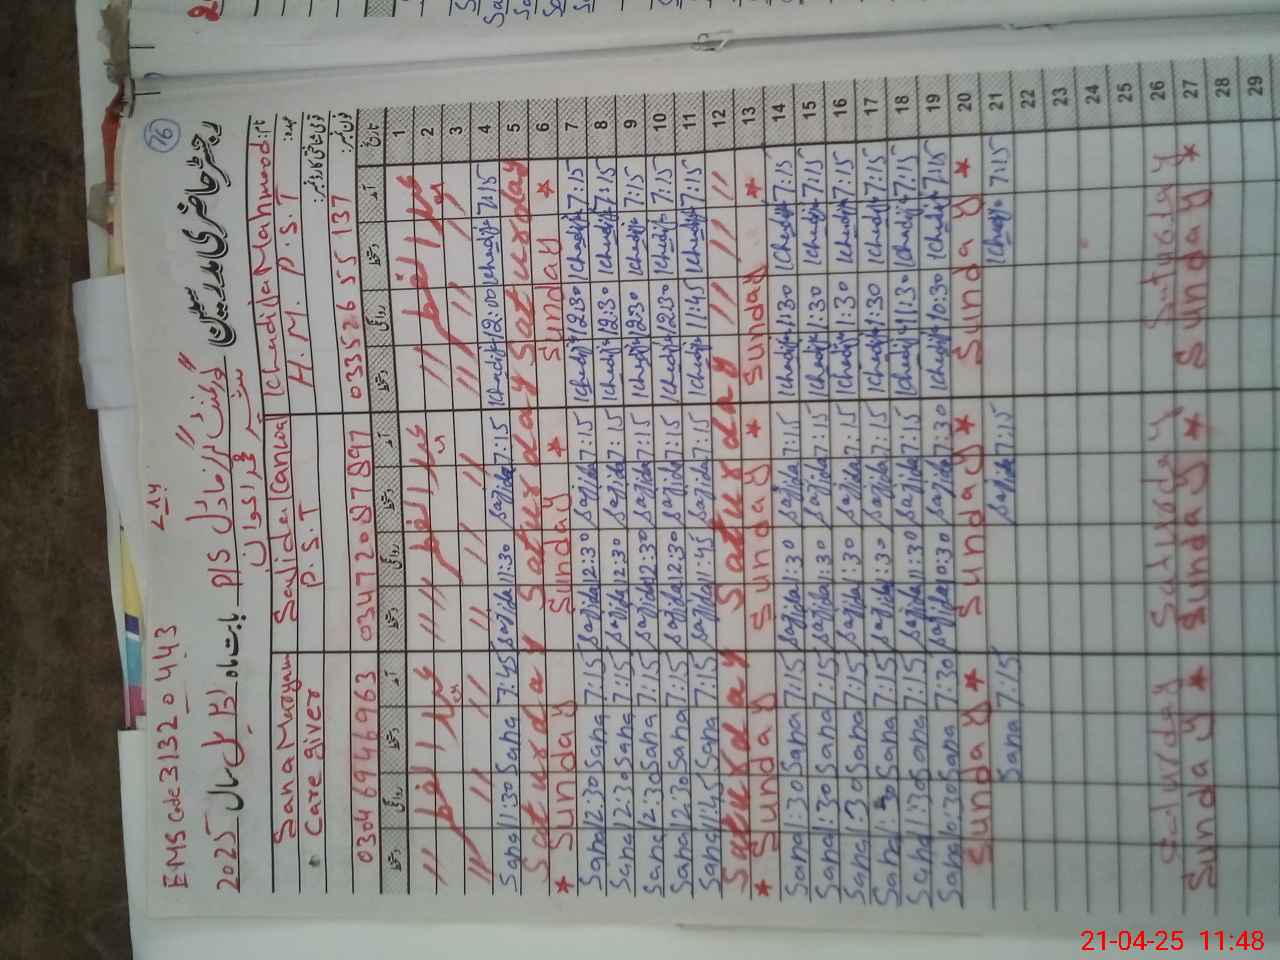 EMS Code 31320443
76
رجسٹر حاضری معلمین گورنمنٹ گرلز ماڈل P/S بابت ماہ اپریل سال 2025
Sana Maryam Sajida Kanwal Khadija Mahmood نام:
Care giver P.S.T H.M. P.S.T عہدہ:
قومی شناختی کارڈ نمبر:
03046946963 03472087897 03352655137 فون نمبر:
دستخط روانگی دستخط آمد دستخط روانگی دستخط آمد دستخط روانگی دستخط آمد تاریخ
1
// // عید الفطر // // عید الفطر // عید الفطر 2
// // // // // // // // 3
Sana 11:30 Sana 7:45 Sajida 11:30 Sajida 7:15 Khadija 12:00 Khadija 7:15 4
Saturday Saturday Saturday 5
* Sunday * Sunday Sunday * 6
Sana 12:30 Sana 7:15 Sajida 12:30 Sajida 7:15 Khadija 12:30 Khadija 7:15 7
Sana 12:30 Sana 7:15 Sajida 12:30 Sajida 7:15 Khadija 12:30 Khadija 7:15 8
Sana 12:30 Sana 7:15 Sajida 12:30 Sajida 7:15 Khadija 12:30 Khadija 7:15 9
Sana 12:30 Sana 7:15 Sajida 12:30 Sajida 7:15 Khadija 12:30 Khadija 7:15 10
Sana 11:45 Sana 7:15 Sajida 11:45 Sajida 7:15 Khadija 11:45 Khadija 7:15 11
Saturday Saturday // // // 12
* Sunday Sunday * Sunday * 13
Sana 1:30 Sana 7:15 Sajida 1:30 Sajida 7:15 Khadija 1:30 Khadija 7:15 14
Sana 1:30 Sana 7:15 Sajida 1:30 Sajida 7:15 Khadija 1:30 Khadija 7:15 15
Sana 1:30 Sana 7:15 Sajida 1:30 Sajida 7:15 Khadija 1:30 Khadija 7:15 16
Sana 1:30 Sana 7:15 Sajida 1:30 Sajida 7:15 Khadija 1:30 Khadija 7:15 17
Sana 11:30 Sana 7:15 Sajida 11:30 Sajida 7:15 Khadija 11:30 Khadija 7:15 18
Sana 10:30 Sana 7:30 Sajida 10:30 Sajida 7:30 Khadija 10:30 Khadija 7:15 19
Sunday * Sunday * Sunday * 20
Sana 7:15 Sajida 7:15 Khadija 7:15 21
22
23
24
25
Saturday Saturday Saturday 26
Sunday * Sunday * Sunday * 27
28
29
21-04-25 11:48